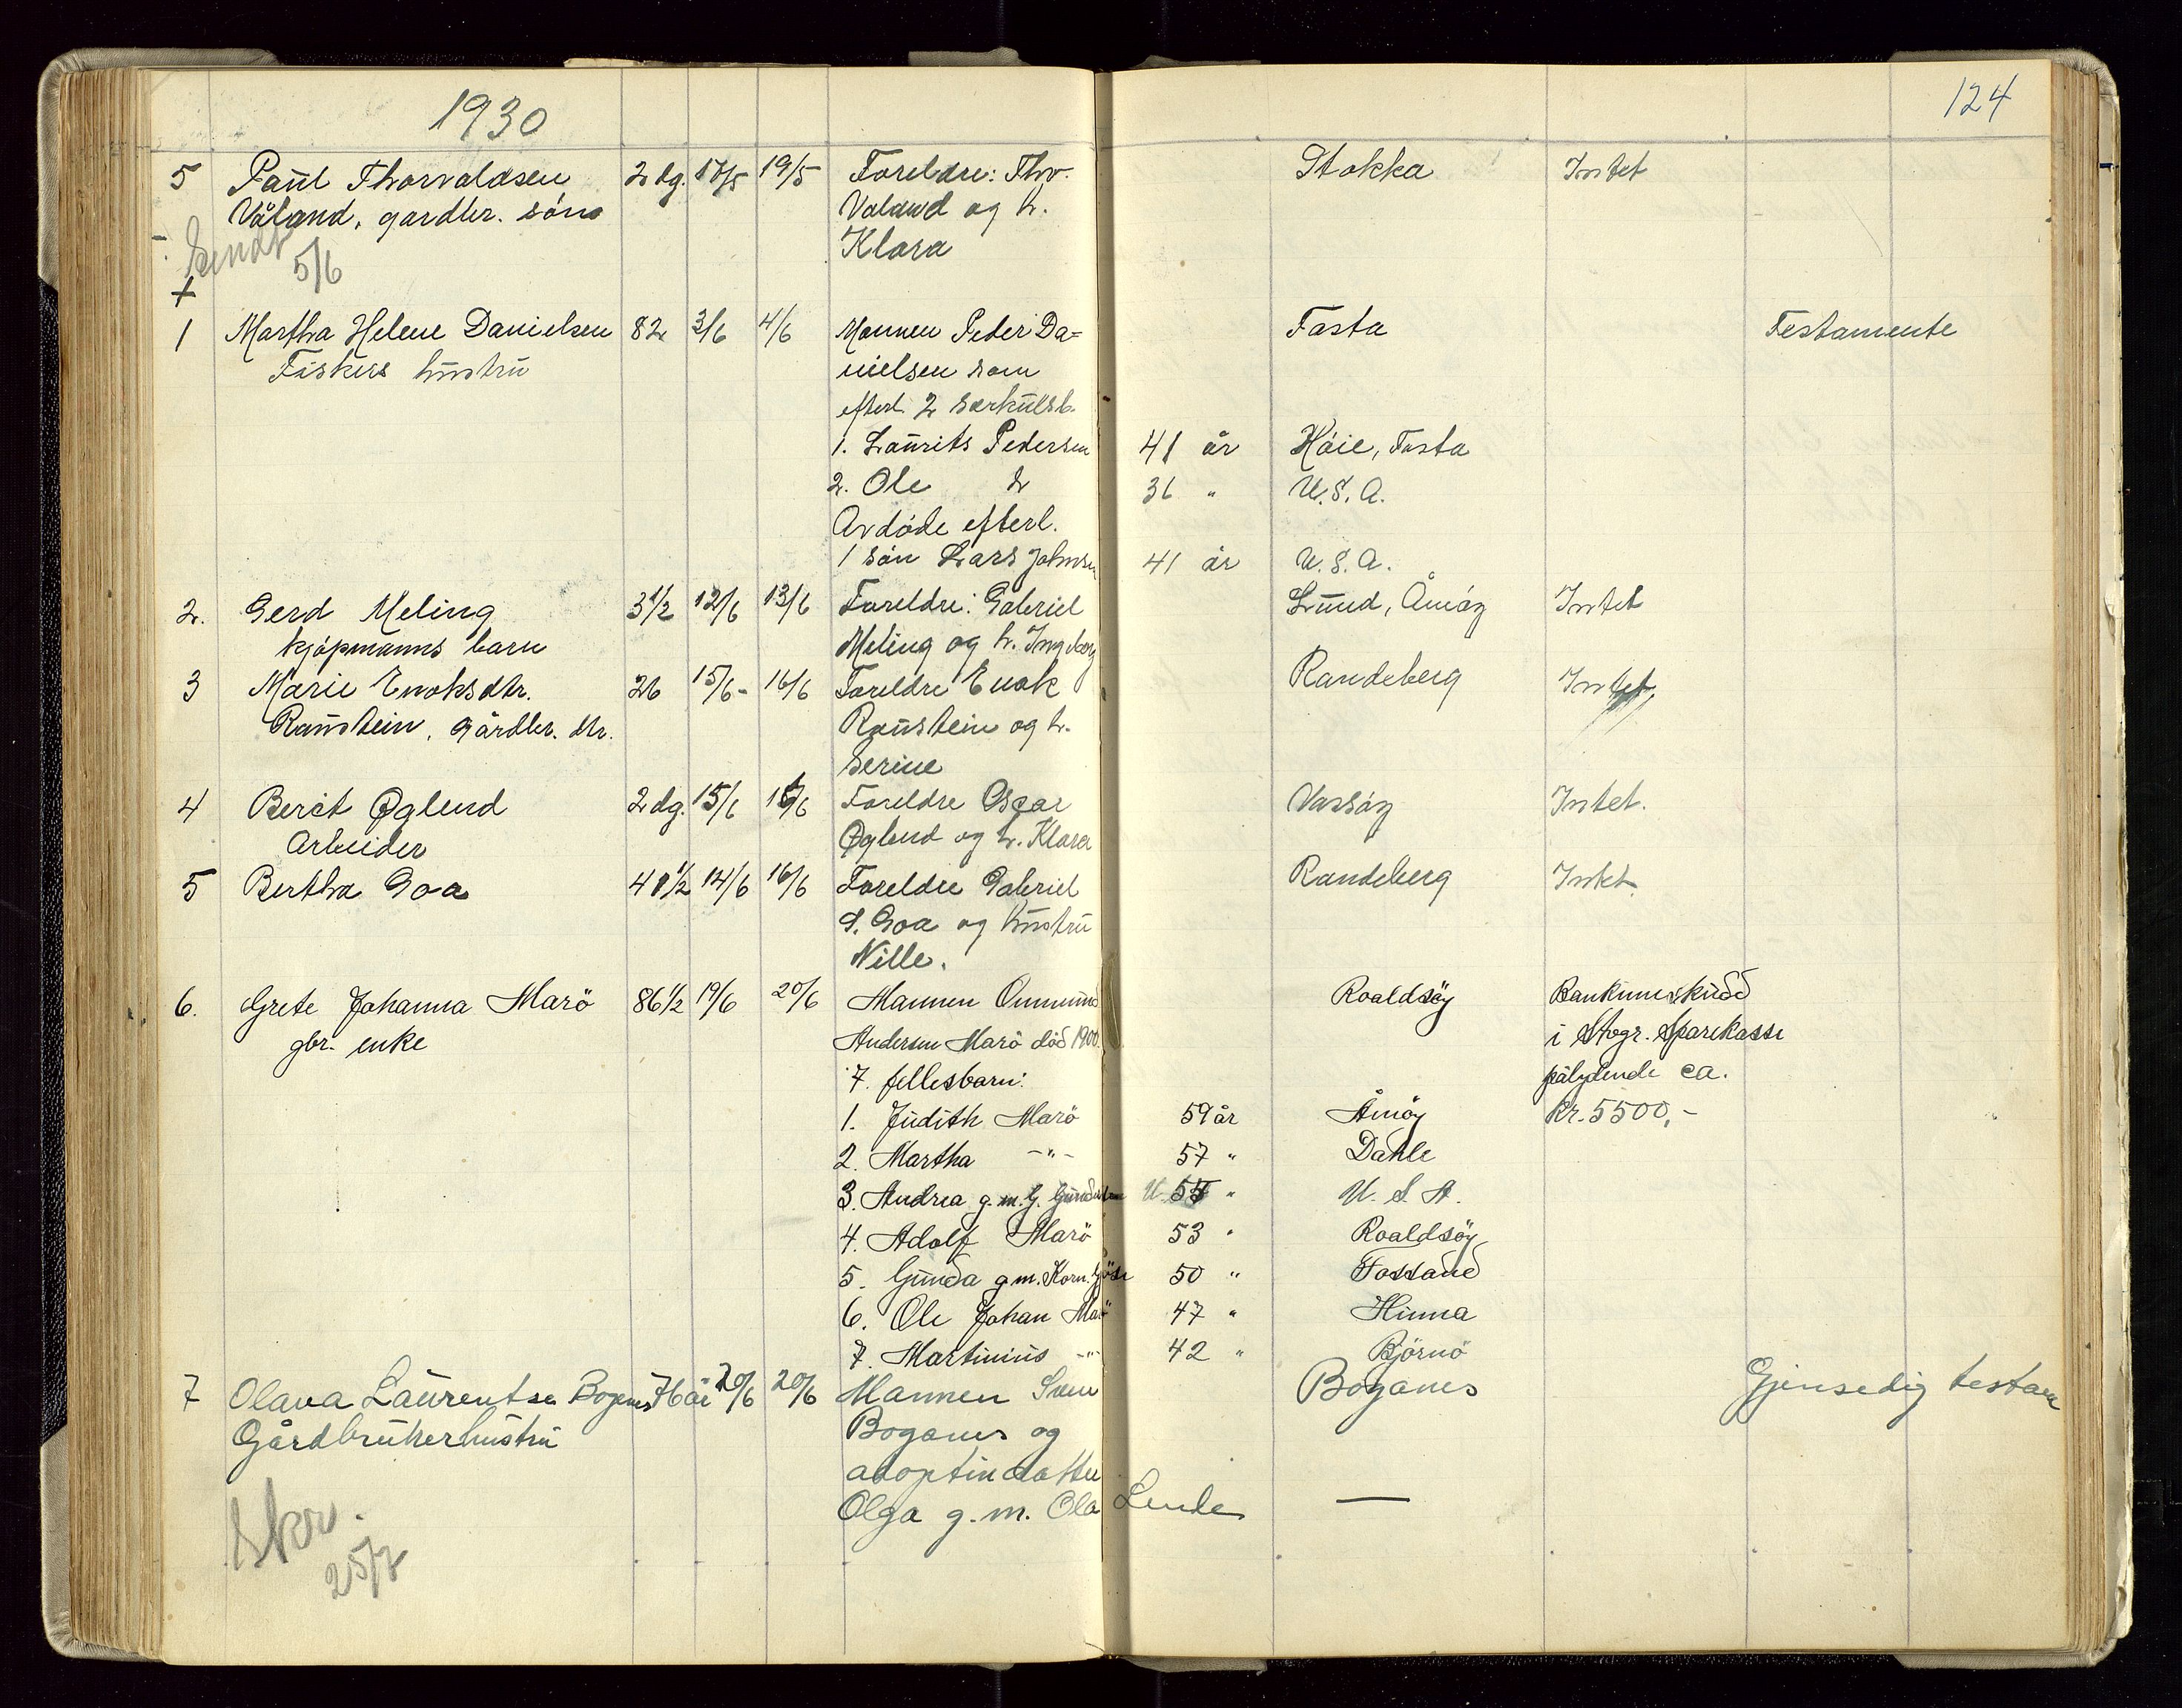 1930
124
5 Paul Thorvaldsen 2 dg. 17/5 19/5 Foreldre: Thv. Stokka Intet
Våland, gardbr. sön Valand og h.
Sendt 5/6 Klara
+
1 Martha Helene Danielsen 82 3/6 4/6 Mannen Peder Da= Tasta Testamente
Fiskers hustru nielsen som
efterl. 2 særkulsb.
1. Laurits Pedersen 41 år Höie, Tasta
2. Ole 36 " U.S.A.
Avdöde efterl.
1 sön Lars Johnsen 41 år U.S.A.
2. Gerd Meling 3½ 12/6 13/6 Foreldre: Gabriel Lund, Åmöy Intet
kjöpmanns barn Meling og h. Ingeborg
3 Marie Enoksdtr. 26 15/6 - 16/6 Foreldre Enok Randeberg Intet
Raustein, gårdbr. dtr. Raustein og h.
Serine
4 Berit Øglend 2 dg. 15/6 16/6 Foreldre Oscar Vassöy Intet.
Arbeider Øglend og h. Klara
5 Bertha Goa 41½ 14/6 16/6 Foreldre Gabriel Randeberg Intet
S. Goa og hustru
Nille.
6. Grete Johanna Marö 86½ 19/6 20/6 Mannen Ommund Roaldsöy Bankinnskudd
gbr. enke Andersen Marö död 1900. i Stvgr. Sparekasse
7 fellesbarn: pålydende ca.
1. Judith Marö 59 år Åmöy Kr. 5500,-
2. Martha -"- 57 " Dahle
3. Andrea g.m. G. Gundersen U. 55 " U.S.A.
4. Adolf Marö 53 " Roaldsöy
5. Gunda g.m. Korn. 50 " Fossand
6. Ole Johan Marö 47 " Hinna
7. Martinius -"- 42 " Björnö
7 Olava Laurentse Boganes 76 år 20/6 20/6 Mannen Sven Boganes Gjensedig testam
Gårdbrukerhustru Boganes og
adoptivdatter
Olga g.m. Ola Lende —
Skr. 25/7